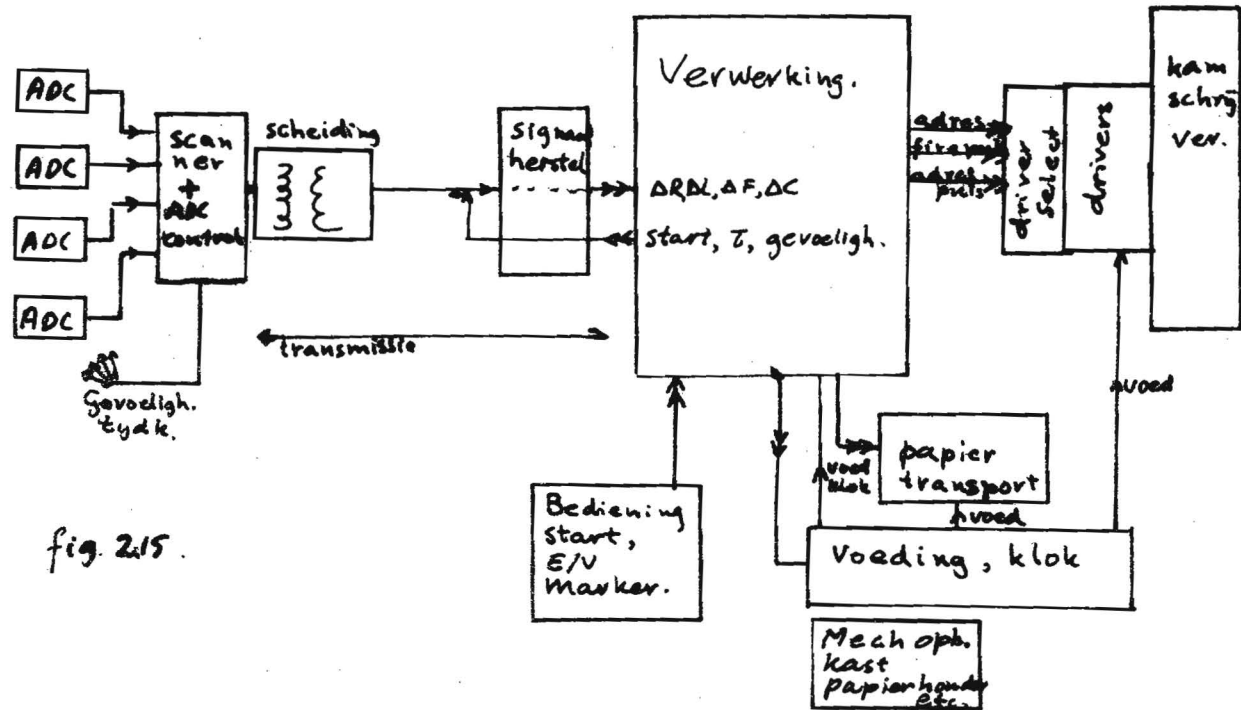 ADC
ADC
ADC
ADC
scan
ner
+
ADC
control
Gevoeligh.
tydk.
scheiding
transmissie
signaal
herstel
Verwerking.
ΔR, ΔL, ΔF, ΔC
start, τ, gevoeligh.
adres
fire puls
adres
puls
driver
select
drivers
kam
schrij
ver.
voed
voed
klok
papier
transport
voed
Bediening
start,
E/V
marker.
Voeding, klok
Mech opb.
kast
papierhouder
etc.
fig. 2.15.